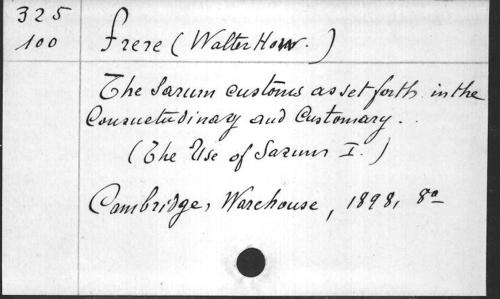 325
100
Frere (Walter How.)
The Sarum customs as set forth in the
Consuetudinary and Customary..
(The Use of Sarum I.)
Cambridge, Warehouse, 1898, 8º